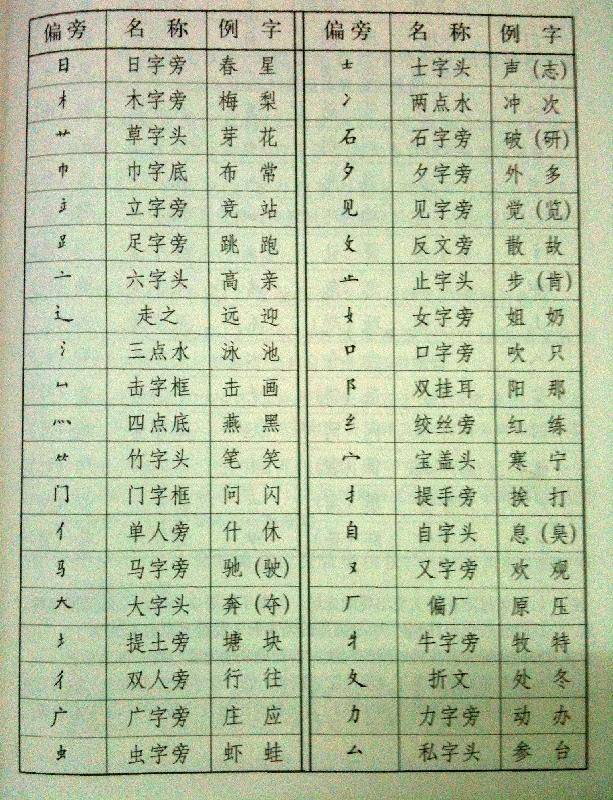 偏旁 名 称 例 字 偏旁 名 称 例 字
日 日字旁 春 星 士 士字头 声（志）
木 木字旁 梅 梨 冫 两点水 冲 次
艹 草字头 芽 花 石 石字旁 破（研）
巾 巾字底 布 常 夕 夕字旁 外 多
立 立字旁 竞 站 见 见字旁 觉（览）
𧾷 足字旁 跳 跑 攵 反文旁 散 故
亠 六字头 高 亲 止 止字头 步（肯）
辶 走之 远 迎 女 女字旁 姐 奶
氵 三点水 泳 池 口 口字旁 吹 只
凵 击字框 击 画 阝 双挂耳 阳 那
灬 四点底 燕 黑 纟 绞丝旁 红 练
⺮ 竹字头 笔 笑 宀 宝盖头 寒 宁
门 门字框 问 闪 扌 提手旁 挨 打
亻 单人旁 什 休 自 自字头 息（臭）
马 马字旁 驰（驶） 又 又字旁 欢 观
大 大字头 奔（夺） 厂 偏厂 原 压
土 提土旁 塘 块 牜 牛字旁 牧 特
彳 双人旁 行 往 夂 折文 处 冬
广 广字旁 庄 应 力 力字旁 动 办
虫 虫字旁 虾 蛙 厶 私字头 参 台